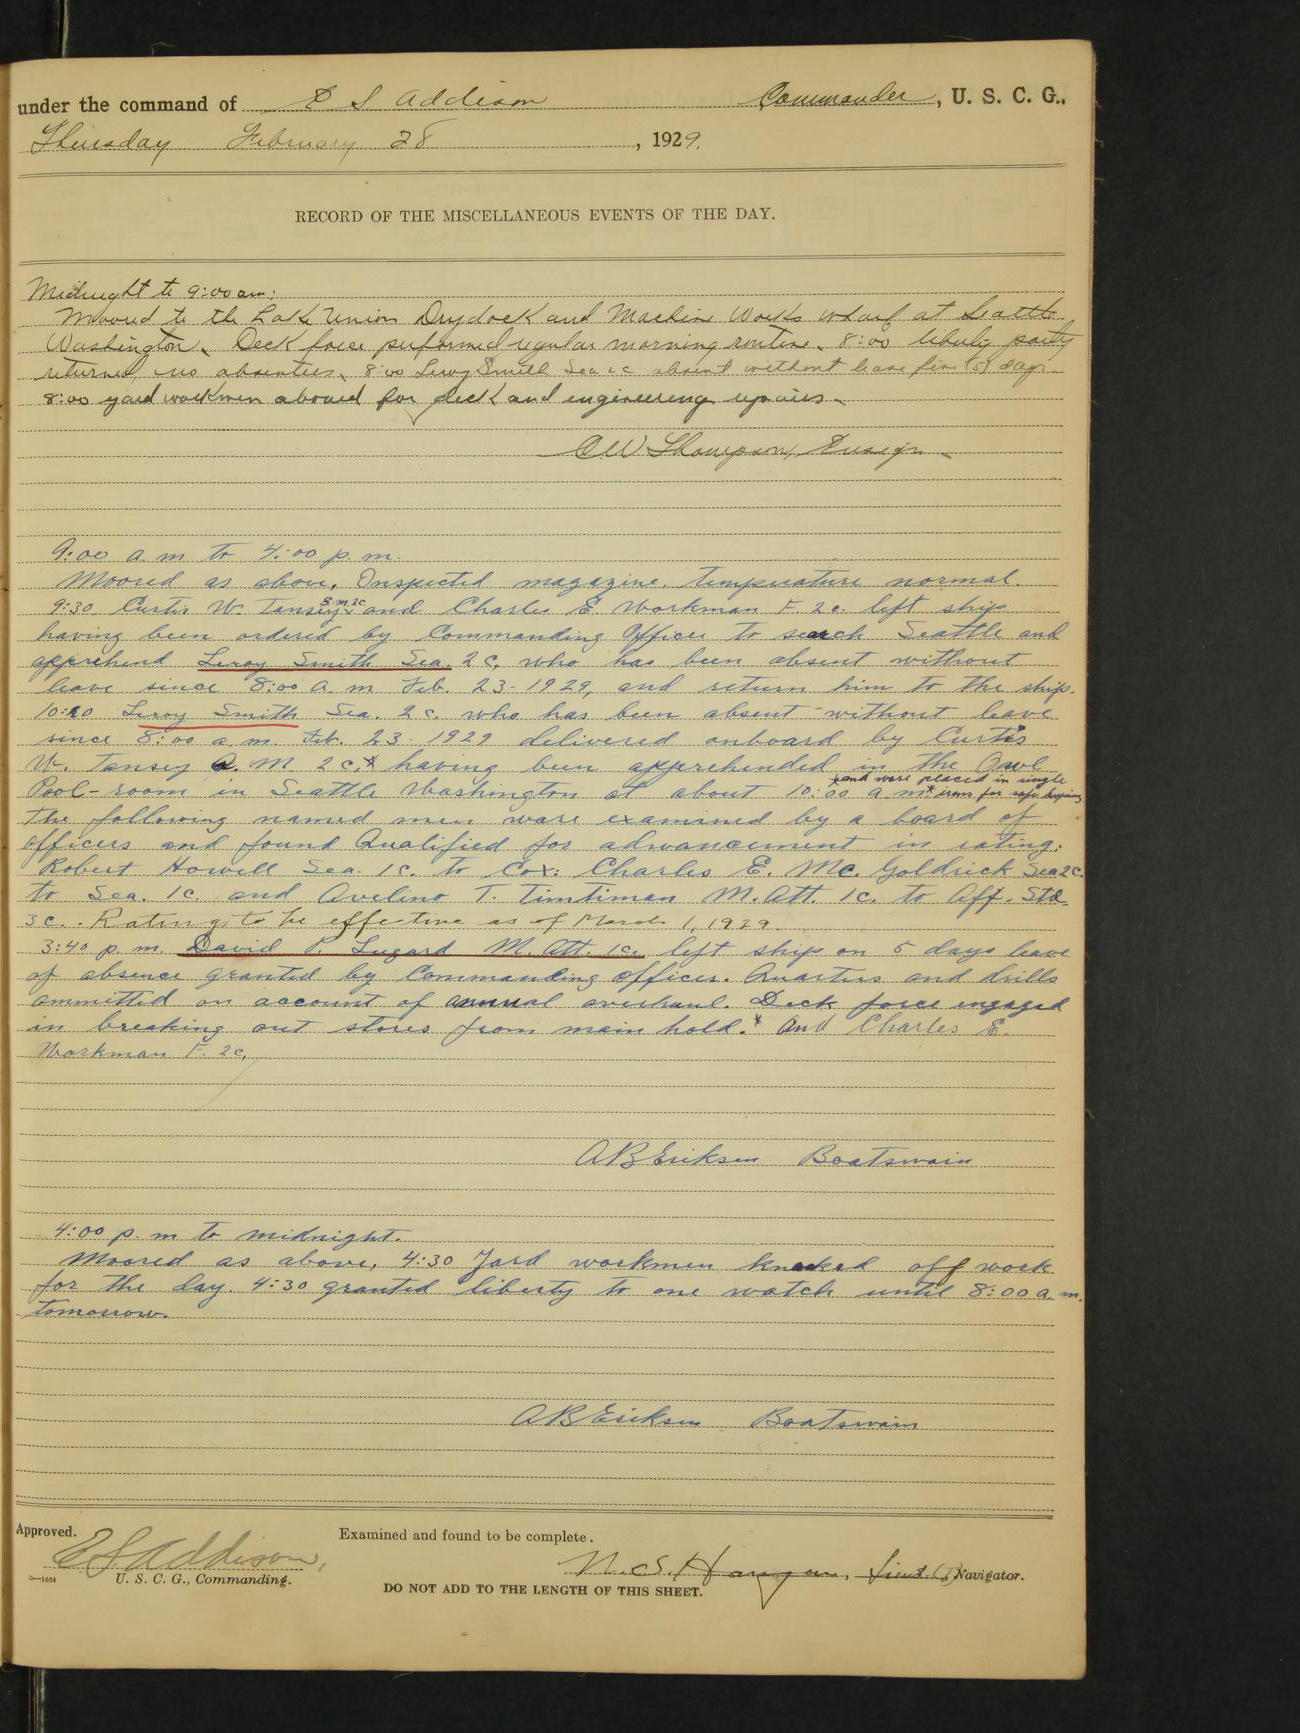 under the command of E S Addison Commander, U. S. C. G.,
Thursday February 28, 1929.
RECORD OF THE MISCELLANEOUS EVENTS OF THE DAY.
Midnight to 9:00 am:
Moored to the Lake Union Drydock and Machine Works wharf at Seattle
Washington. Deck force performed regular morning routine. 8:00 liberty party
returned, no absenties. 8:00 Leroy Smith Sea 2c absent without leave five (5) days.
8:00 yard workmen aboard for deck and engineering repairs.
C W Thompson, Ensign.
9:00 a.m. to 4:00 p.m.
Moored as above. Inspected magazine, temperature normal.
9:30 Curtis W. Tansey and Charles E Workman F. 2c. left ship
having been ordered by Commanding Officer to search Seattle and
apprehend Leroy Smith Sea. 2c. who has been absent without
leave since 8:00 a.m Feb. 23-1929, and return him to the ship.
Leroy Smith Sea. 2c. who has been absent without leave
since 8:00 a.m. Feb. 23 1929 delivered onboard by Curtis
W. Tansey M 2c.* having been apprehended in the
*and were placed in single
Pool-room in Seattle Washington at about 10:00 a.m* irons for safe keeping
The following named men ware examined by a board of
officers and found Qualified for advancement in rating:
Robert Howell Sea. 1c. to Cox. Charles E. Mc Goldrick Sea 2c.
to Sea. 1c. and Avelino T. Timtiman M. Att. 1c. to Off. Std.
3c. Ratings to be effective as of March 1, 1929
3:40 p.m. David P. Lugard M. Att. 1c. left ship on 5 days leave
of absence granted by Commanding officer. Quarters and drills
ommitted on account of annual overhaul. Deck force engaged
in breaking out stores from main hold.* and Charles E.
Workman F. 2c.
A B Eriksen Boatswain
4:00 p.m to midnight.
Moored as above, 4:30 Yard workmen knocked off work
for the day. 4:30 granted liberty to one watch until 8:00 a.m.
tomorrow.
A B Eriksen Boatswain
Approved. Examined and found to be complete.
E S Addison,
U. S. C. G., Commanding. Lieut. (T), Navigator.
DO NOT ADD TO THE LENGTH OF THIS SHEET.